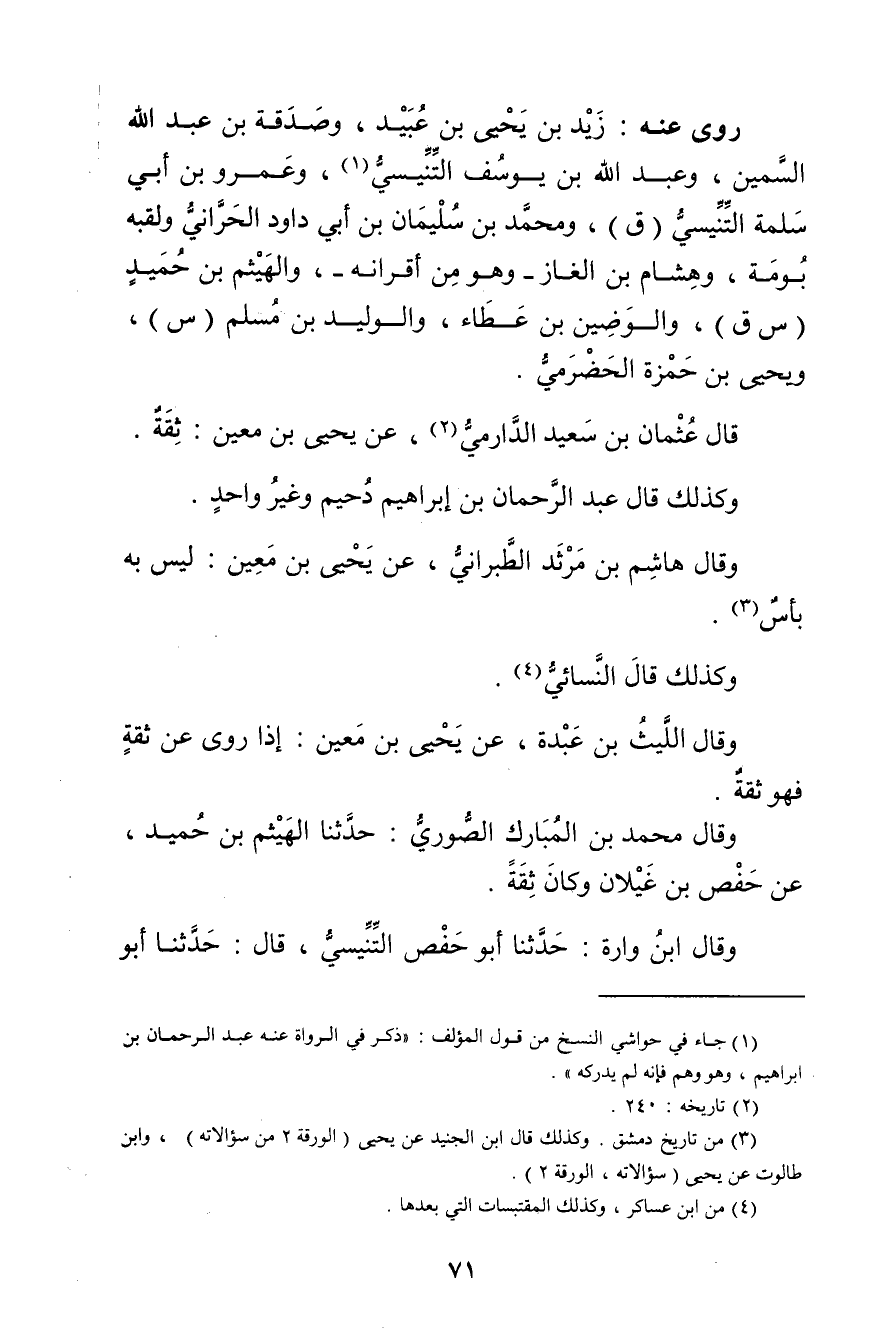 روى عنه : زَيْد بن يَحْيى بن عُبَيْد ، وصَدَقة بن عبد الله
السَّمين ، وعبد الله بن يوسُف التِّنِّيسيُّ(١) ، وعَمرو بن أبي
سَلمة التِّنِّيسيُّ ( ق ) ، ومحمَّد بن سُلَيْمَان بن أبي داود الحَرَّانيُّ ولقبه
بُومَة ، وهِشام بن الغاز ـ وهو مِن أقرانه ـ ، والهَيْثم بن حُمَيدٍ
( س ق ) ، والوَضِين بن عَطَاء ، والوليد بن مُسلم ( س ) ،
ويحيى بن حَمْزة الحَضْرَميُّ .
قال عُثْمان بن سَعيد الدَّارميُّ(٢) ، عن يحيى بن معين : ثِقَةٌ .
وكذلك قال عبد الرَّحمان بن إبراهيم دُحيم وغيرُ واحدٍ .
وقال هاشِم بن مَرْثَد الطَّبرانيُّ ، عن يَحْيى بن مَعِين : ليس به
بأسٌ(٣) .
وكذلك قالَ النَّسائيُّ(٤) .
وقال اللَّيثُ بن عَبْدة ، عن يَحْيى بن مَعين : إذا روى عن ثقةٍ
فهو ثقةٌ .
وقال محمد بن المُبَارك الصُّوريُّ : حدَّثنا الهَيْثم بن حُميد ،
عن حَفْص بن غَيْلان وكانَ ثِقَةً .
وقال ابنُ وارة : حَدَّثنا أبو حَفْص التِّنِّيسيُّ ، قال : حَدَّثنا أبو
(١) جاء في حواشي النسخ من قول المؤلف : «ذكر في الرواة عنه عبد الرحمان بن
ابراهيم ، وهو وهم فإنه لم يدركه » .
(٢) تاريخه : ٢٤٠ .
(٣) من تاريخ دمشق . وكذلك قال ابن الجنيد عن يحيى ( الورقة ٢ من سؤالاته ) ، وابن
طالوت عن يحيى ( سؤالاته ، الورقة ٢ ) .
(٤) من ابن عساكر ، وكذلك المقتبسات التي بعدها .
٧١